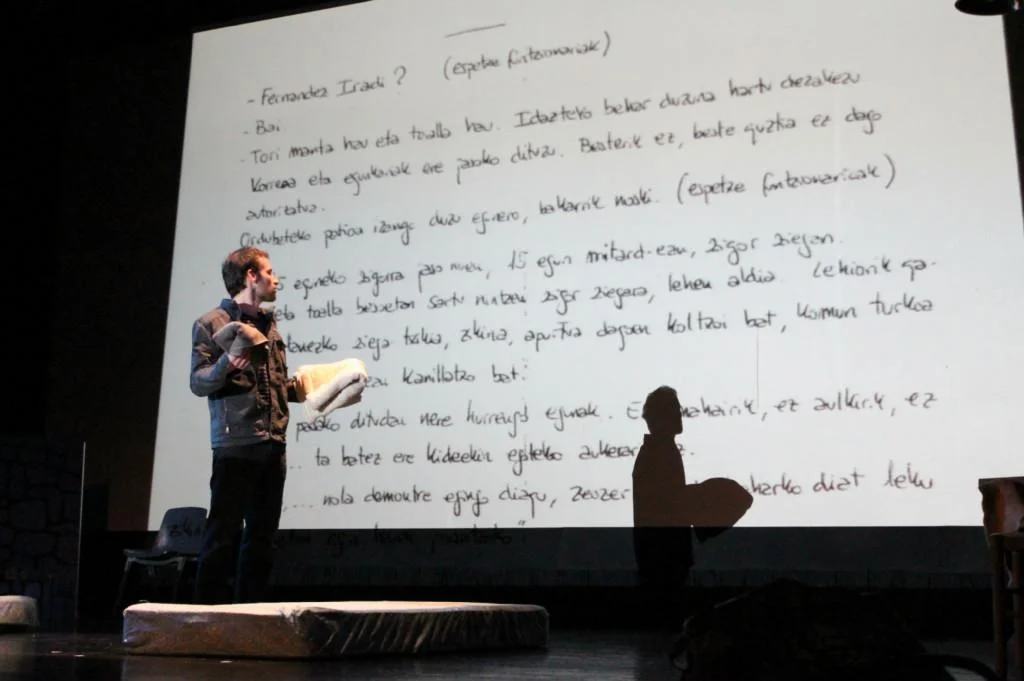 - Fernandez Iradi? (espetxe funtzionariak)
- Bai.
- Tori manta hau eta toalla hau. Idazteko behar duzuna hartu dezakezu
Korreoa eta egunkariak ere jasoko dituzu. Besterik ez, beste guztia ez dago
autorizatua.
Ordubeteko patioa izango duzu egunero, bakarrik noski. (espetxe funtzionarioak)
5 eguneko zigorra jaso nuen, 15 egun mitard-ean, zigor ziegan.
eta toalla besoetan sartu nintzen zigor ziegara, lehen aldia. Lehiorik ga-
zieja txikia, zikina, apurtua dagoen koltxoi bat, komun turkoa
kamillatxo bat.
pasako ditudan nere hurrengo egunak. mahairik, ez aulkirik, ez
... ta batez ere kideekin egoteko aukera
... nola demontre egingo diagu, leku